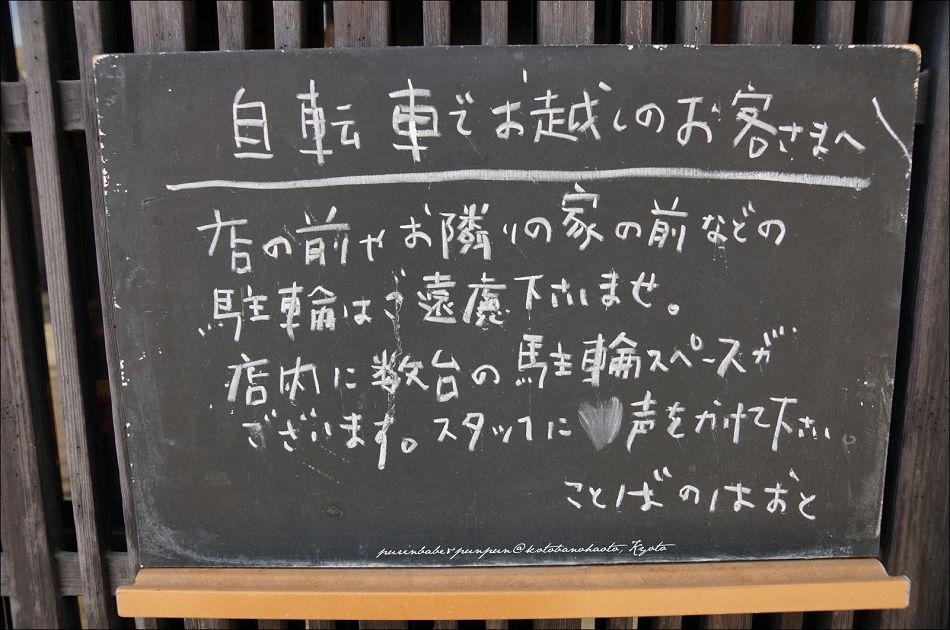 自転車でお越しのお客さまへ
店の前やお隣りの家の前などの
駐輪はご遠慮下さいませ。
店内に数台の駐輪スペースが
ございます。スタッフに♥声をかけて下さい。
ことばのはおと
purinbabe&punpun@kotobanohaoto, Kyoto